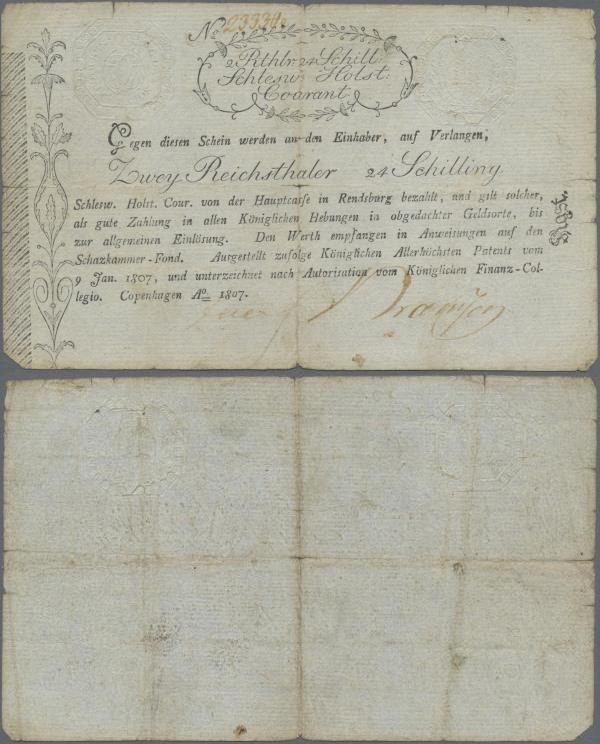 No 23334.
2 Rthlr 24 Schill:
Schlesw: Holst:
Courant
Gegen diesen Schein werden an den Einhaber, auf Verlangen,
Zwey Reichsthaler 24 Schilling
Schlesw. Holst. Cour. von der Hauptcasse in Rendsburg bezahlt, und gilt solcher,
als gute Zahlung in allen Königlichen Hebungen in obgedachter Geldsorte, bis
zur allgemeinen Einlösung. Den Werth empfangen in Anweisungen auf den
Schazkammer-Fond. Ausgestellt zufolge Königlichen Allerhöchsten Patents vom
9 Jan. 1807, und unterzeichnet nach Autorisation vom Königlichen Finanz-Col-
legio. Copenhagen Ao 1807.